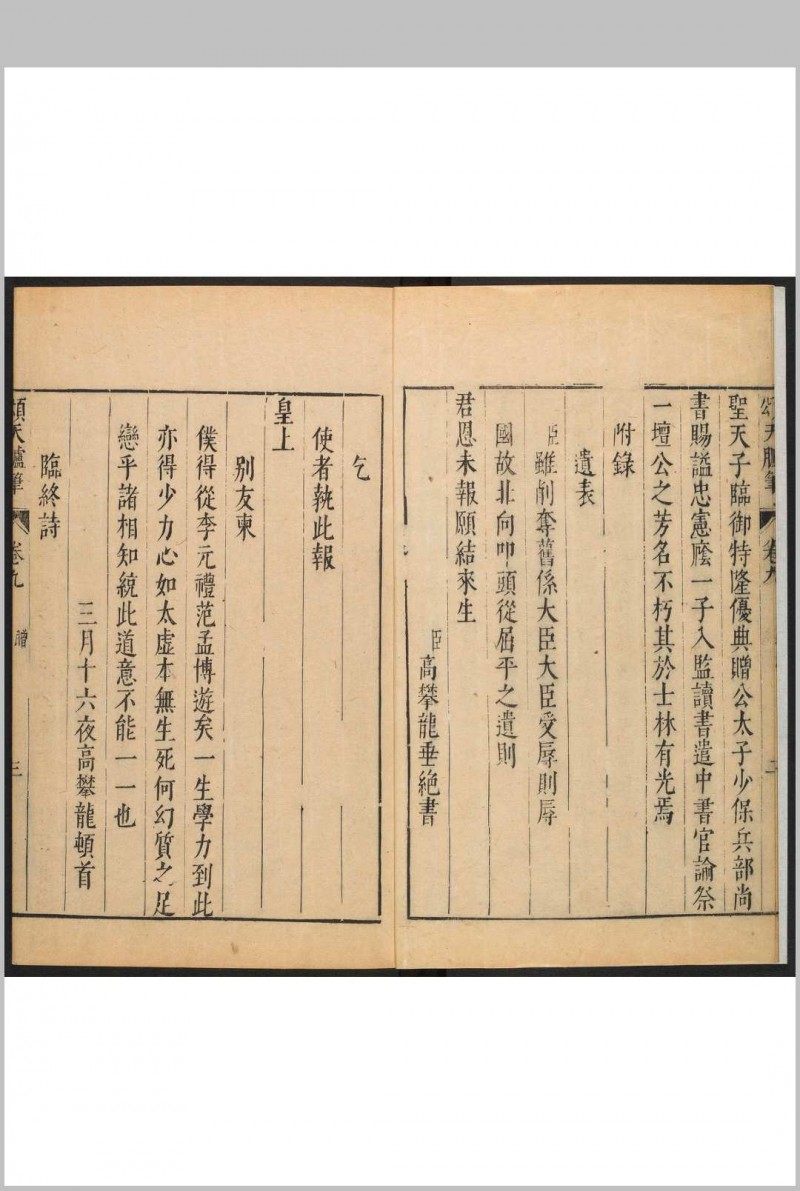 頌天臚筆 卷九 二
聖天子臨御特隆優典贈公太子少保兵部尚
書賜謚忠憲廕一子入監讀書遣中書官諭祭
一壇公之芳名不朽其於士林有光焉
附錄
遺表
臣雖削奪舊係大臣大臣受辱則辱
國故北向叩頭從屈平之遺則
君恩未報願結來生
臣高攀龍垂絕書
乞
使者執此報
皇上
別友柬
僕得從李元禮范孟博遊矣一生學力到此
亦得少力心如太虛本無生死何幻質之足
戀乎諸相知統此道意不能一一也
三月十六夜高攀龍頓首
臨終詩
頌天臚筆 卷九 贈 三